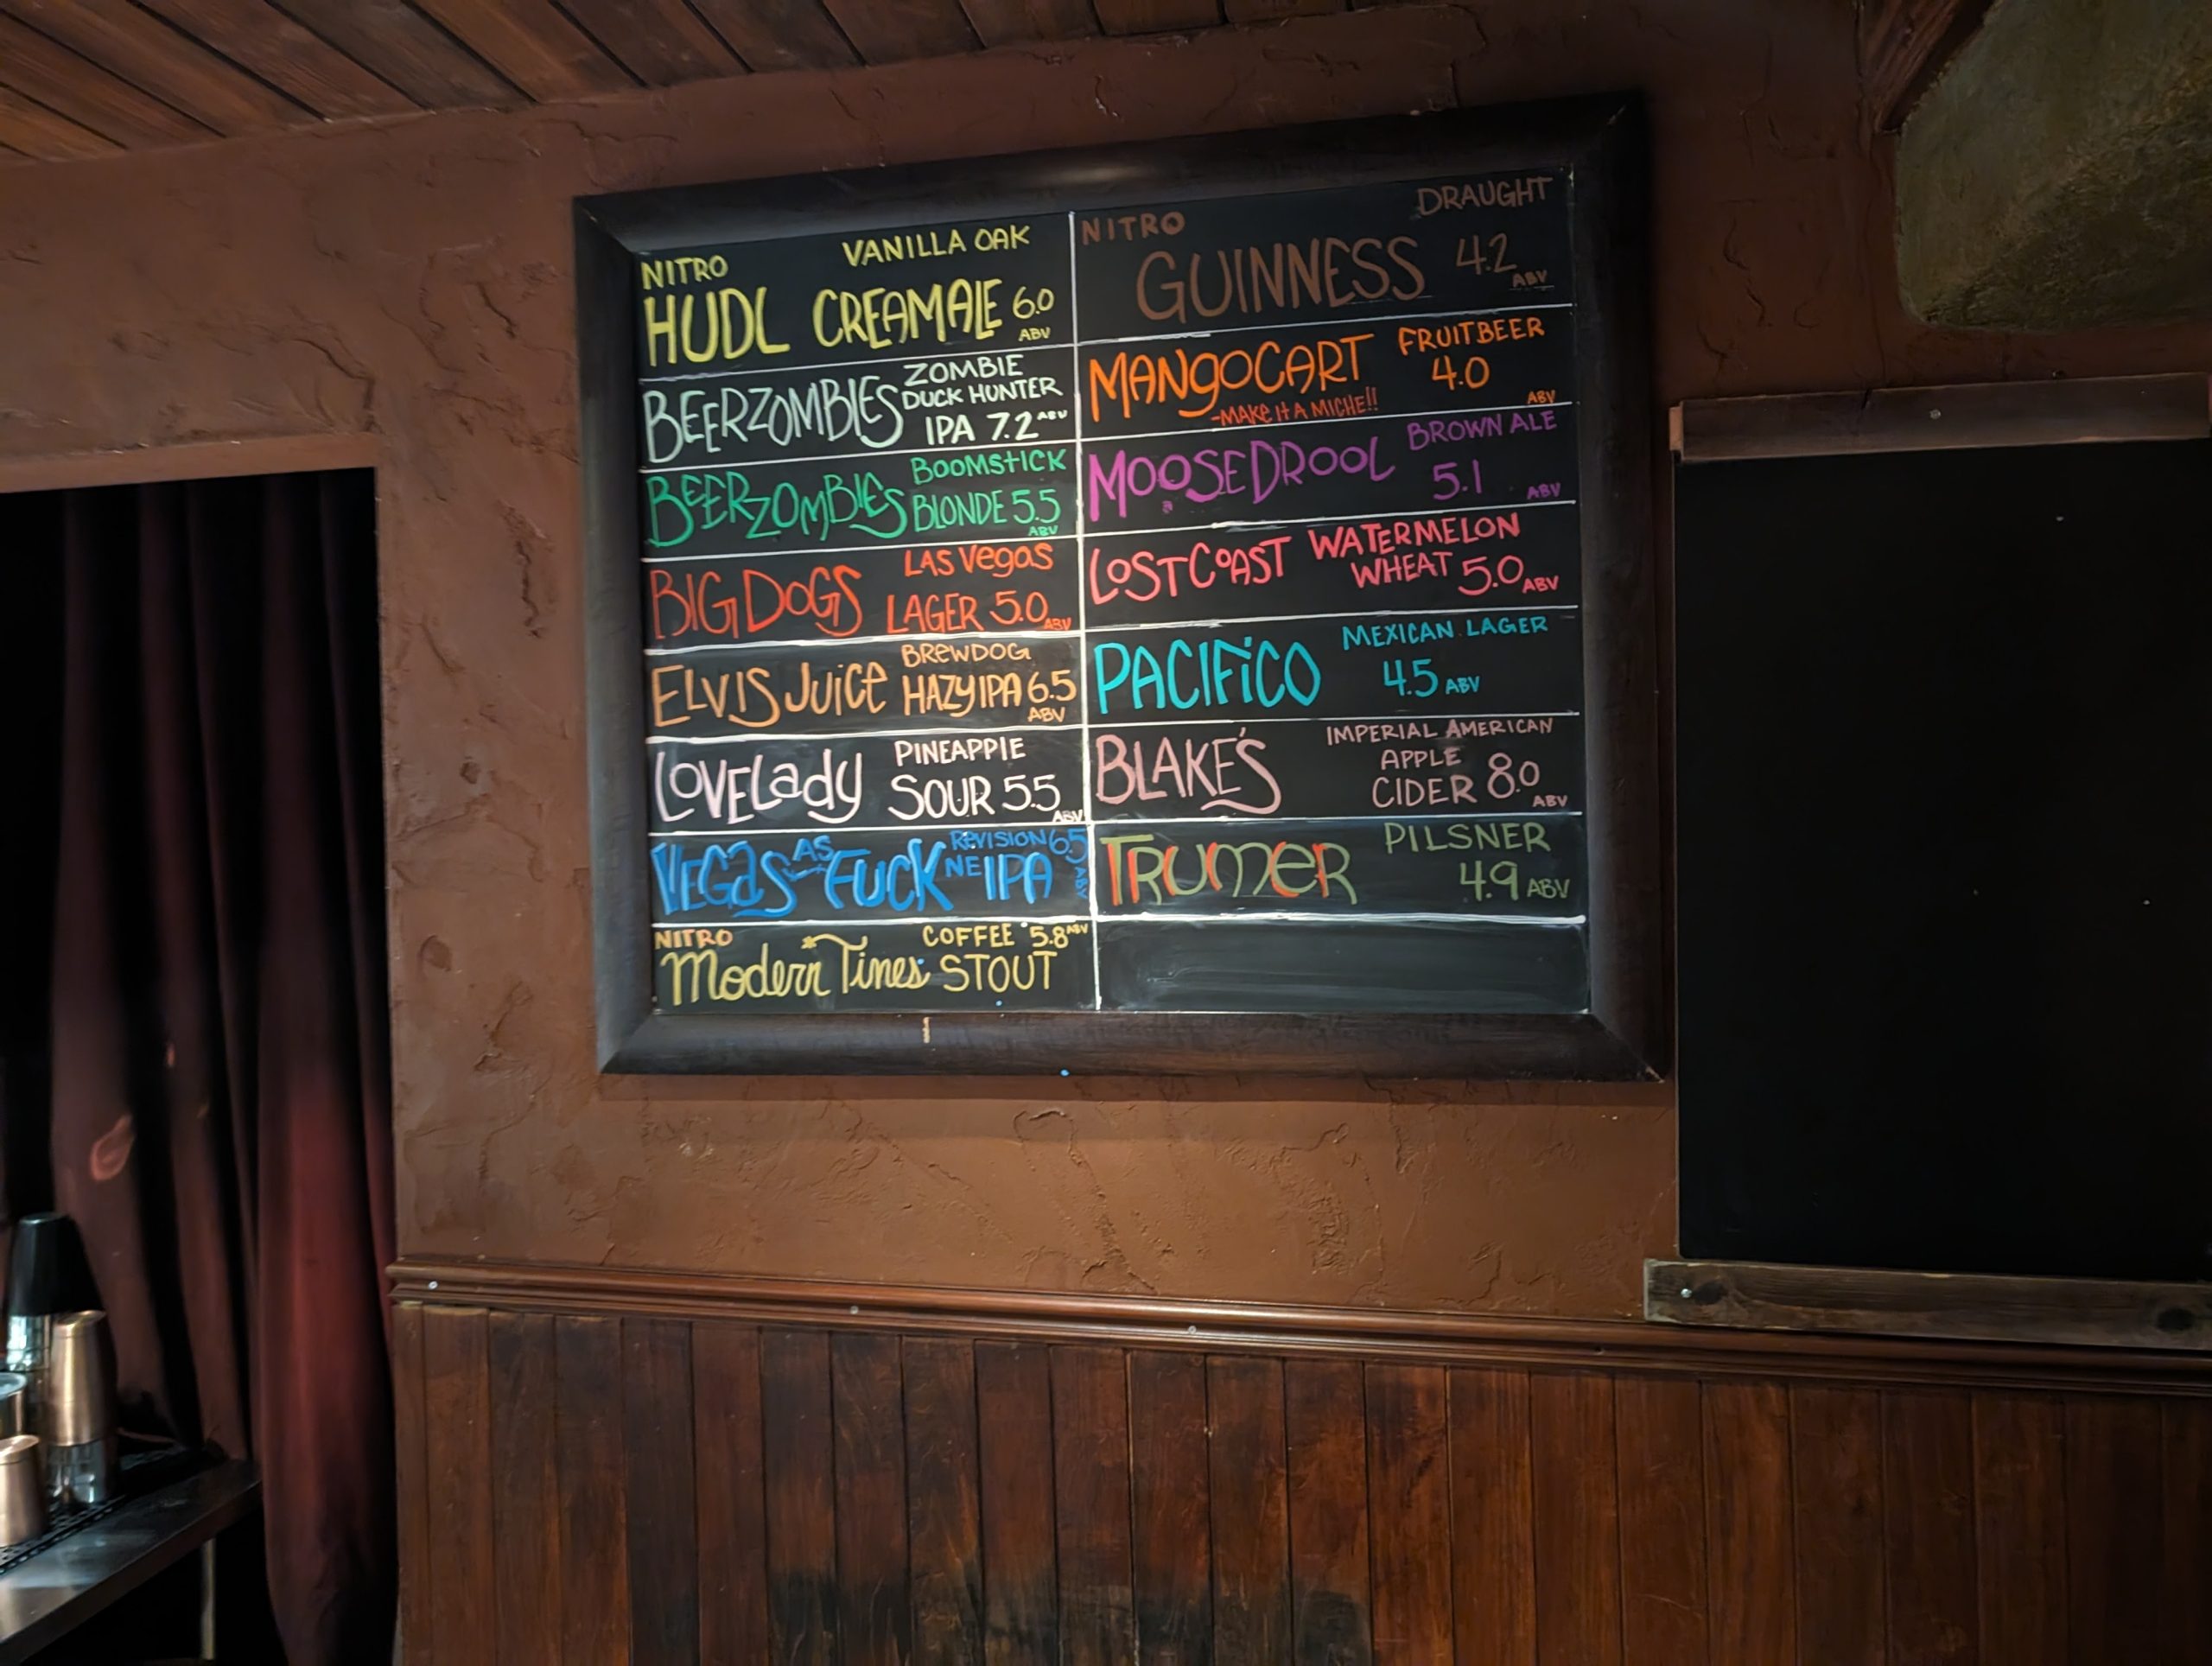 NITRO VANILLA OAK
HUDL CREAMALE 6.0
ABV
BEERZOMBIES ZOMBIE
DUCK HUNTER
IPA 7.2 ABV
BEERZOMBIES BOOMSTICK
BLONDE 5.5
ABV
BIG DOGS LAS VEGAS
LAGER 5.0 ABV
ELVIS JUICE BREWDOG
HAZY IPA 6.5
ABV
LOVELADY PINEAPPLE
SOUR 5.5
ABV
VEGAS AS FUCK REVISION 6.5
NE IPA ABV
NITRO COFFEE 5.8 ABV
Modern Tines STOUT
NITRO DRAUGHT
GUINNESS 4.2
ABV
MANGOCART FRUITBEER
4.0
-MAKE IT A MICHE!! ABV
MOOSEDROOL BROWN ALE
5.1 ABV
LOSTCOAST WATERMELON
WHEAT 5.0 ABV
PACIFICO MEXICAN LAGER
4.5 ABV
BLAKE'S IMPERIAL AMERICAN
APPLE
CIDER 8.0
ABV
TRUMER PILSNER
4.9 ABV